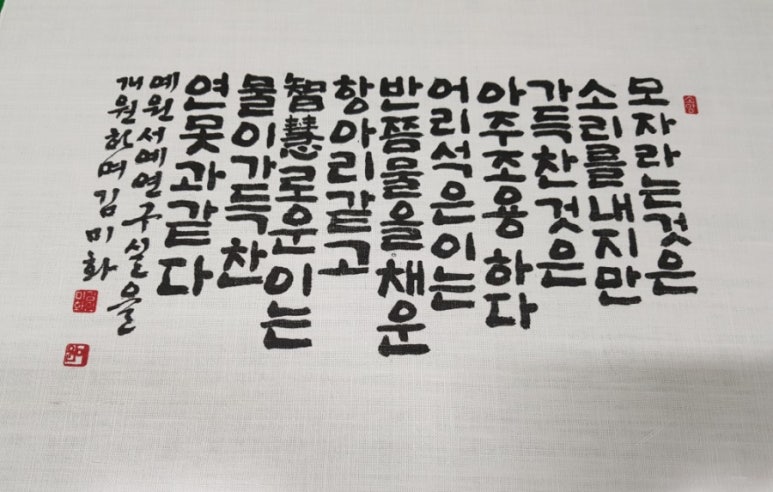 모자라는것은
소리를내지만
가득찬것은
아주조용하다
어리석은이는
반쯤물을채운
항아리같고
智慧로운이는
물이가득찬
연못과같다
예원서예연구실을
개원하며김미화